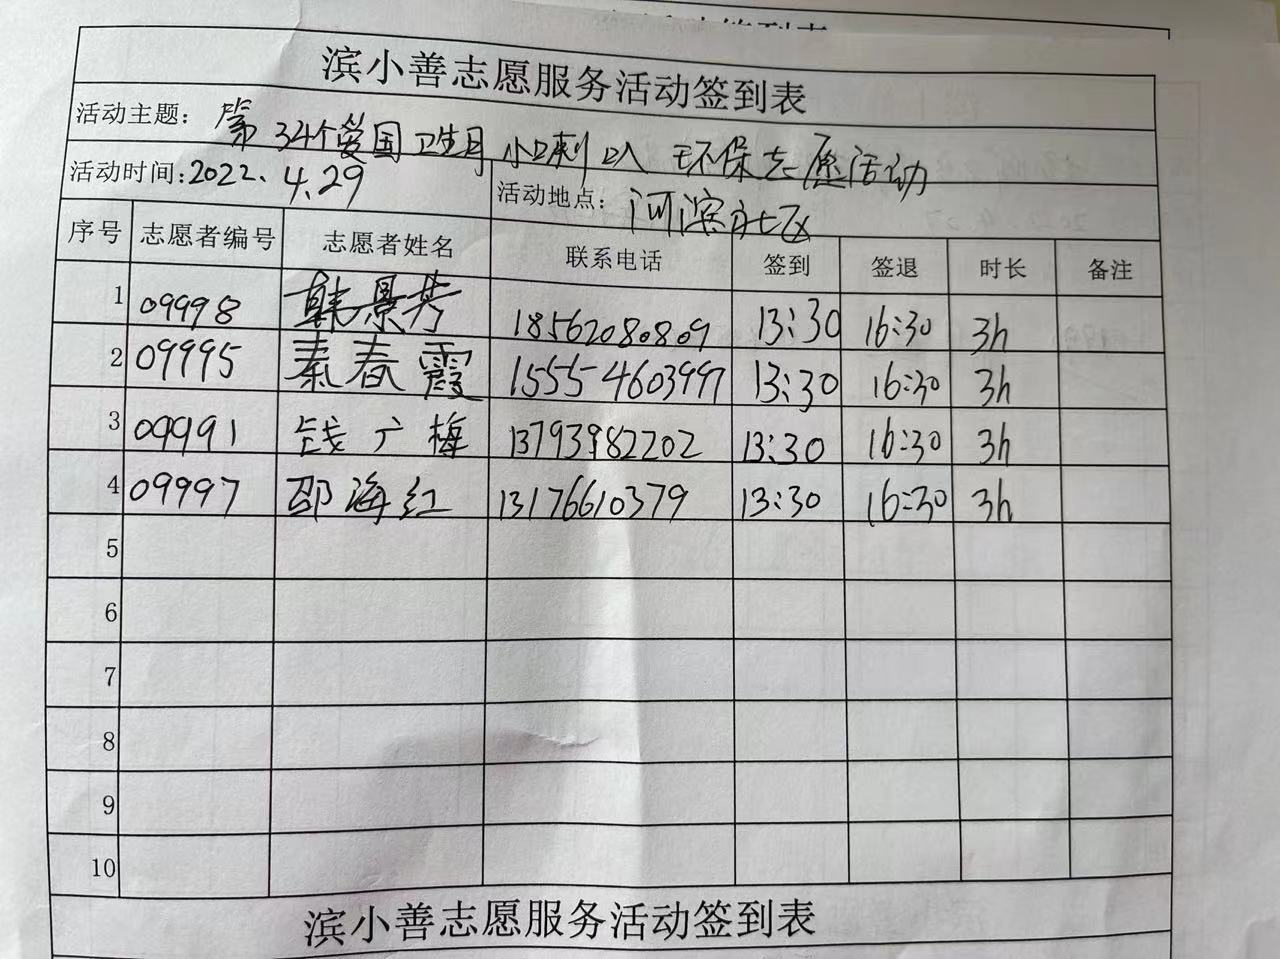 滨小善志愿服务活动签到表
活动主题: 第34个爱国卫生月 环保志愿活动
活动时间:2022.4.29 活动地点: 河滨社区
序号 志愿者编号 志愿者姓名 联系电话 签到 签退 时长 备注
1 09998 韩景芳 18562080809 13:30 16:30 3h
2 09995 秦春霞 15554603997 13:30 16:30 3h
3 09991 钱广梅 13793982202 13:30 16:30 3h
4 09997 邵海红 13176610379 13:30 16:30 3h
5
6
7
8
9
10
滨小善志愿服务活动签到表